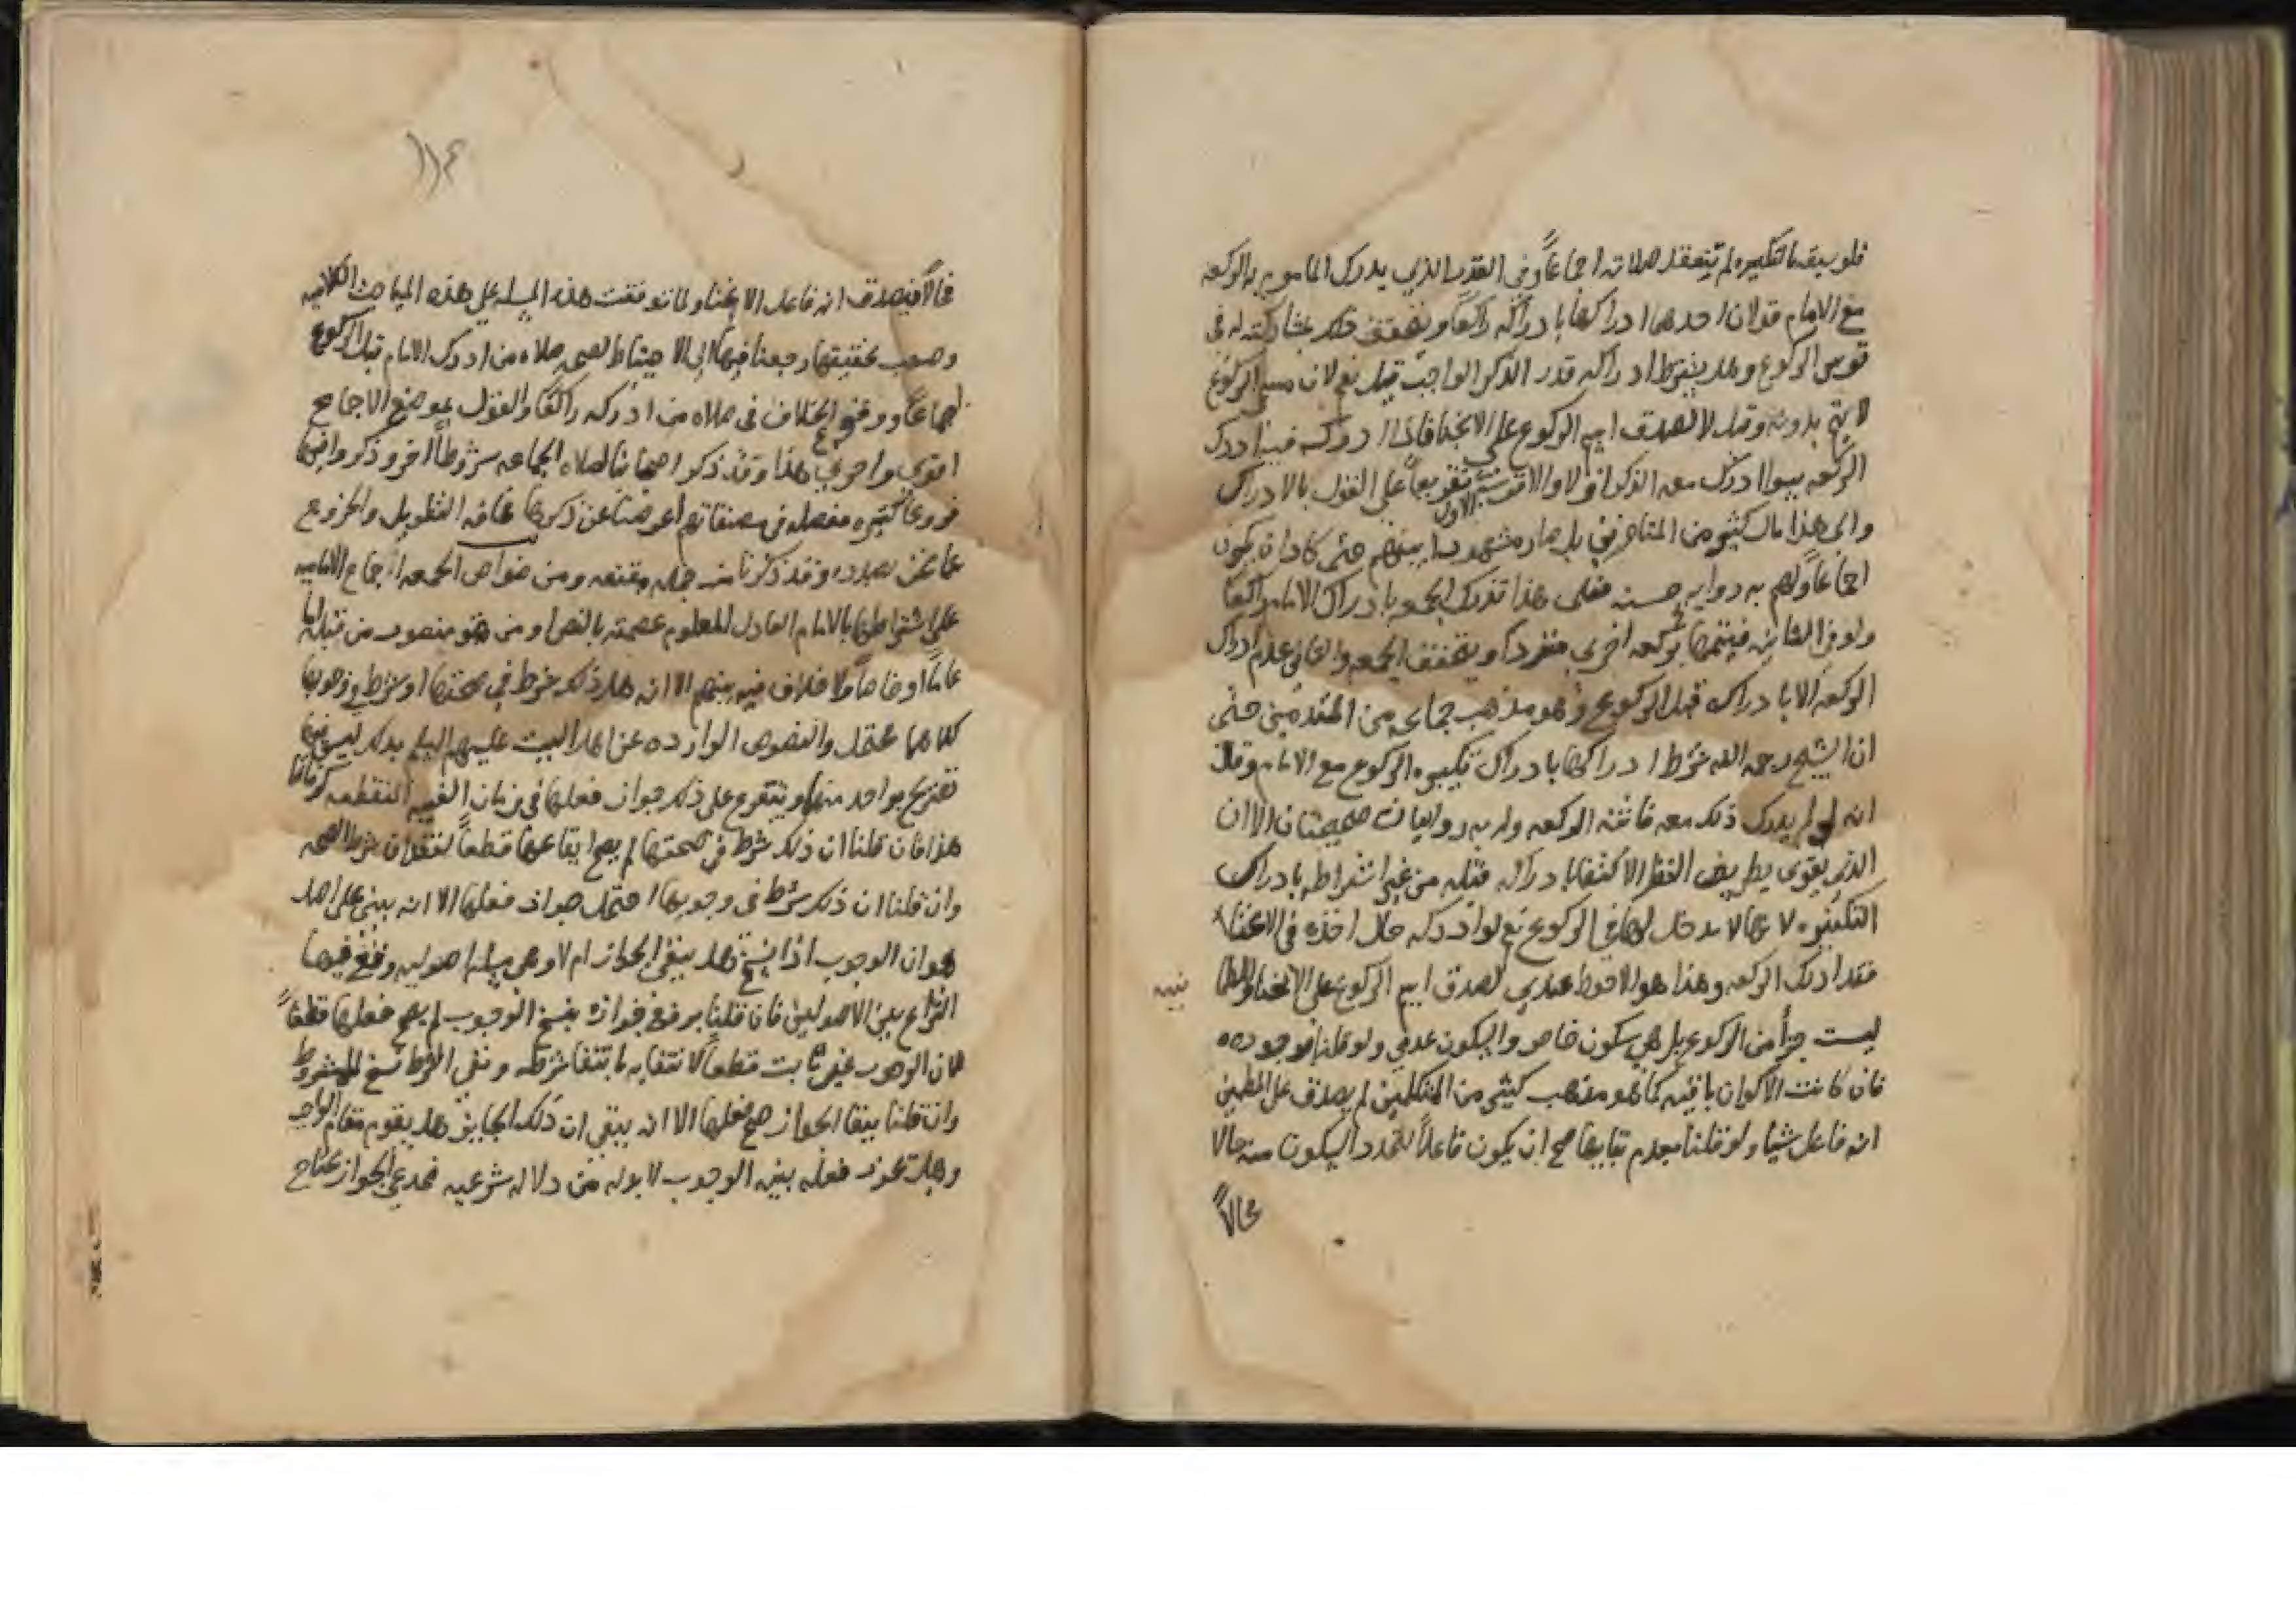 فلو سبقه بالتكبيره لم تنعقد صلاته اجماعاً وفى القدر الذي يدرك الماموم به الركعه
مع الامام قولان احدهما ادراكها بادراكه راكعاً ويتحقق ذلك بمشاركته له فى
قوس الركوع وهل يشترط ادراكه قدر الذكر الواجب قيل نعم لان مسمى الركوع
لا يتم بدونه وقيل لا لصدق اسم الركوع على الانحنا فاذا ادركه فيه ادرك
الركعه سواء ادرك معه الذكر او لا والاقوى الاول تفريعاً على القول بالادراك
والى هذا مال كثير من المتاخرين بل صار مشهورا بينهم حتى كاد ان يكون
اجماعاً ولهم به روايه حسنه فعلى هذا تدرك الجمعه بادراك الامام راكعا
ولو فى الثانيه فيتمها بركعه اخرى منفرداً ويتحقق الجمعه والثانى عدم ادراك
الركعه الا بادراكه قبل الركوع وهو مذهب جماعه من المتقدمين حتى
ان الشيخ رحمه الله شرط ادراكها بادراك تكبيره الركوع مع الامام وقال
انه لو لم يدرك ذلك معه فاتته الركعه وله به روايتان صحيحتان الا ان
الذي يقوى بطريق النظر الاكتفا بادراكه قبله من غير اشتراطه بادراك
التكبيره لانها لا مدخل لها فى الركوع نعم لو ادركه حال اخذه فى الانحناء
فقد ادرك الركعه وهذا هو الاحوط عندي لصدق اسم الركوع على الانحنا والطما
نينه
ليست جزأ من الركوع بل هي سكون خاص والسكون عدمي ولو قلنا بوجوده
فان كانت الاكوان باقيه كما هو مذهب كثير من المتكلمين لم يصدق على المطمين
انه فاعل شيا ولو قلنا بعدم بقايها صح ان يكون فاعلاً لتجدد السكون منه حالا
فحالاً
١١٤
فحالاً فيصدق انه فاعل الانحنا ولما توقفت هذه المسله على هذه المباحث الكلاميه
وصعب تحقيقها رجعنا فيها الى الاحتياط لصحه صلاه من ادرك الامام قبل الركوع
اجماعاً ووقع الخلاف فى صلاه من ادركه راكعاً والقول بموضع الاجماع
اقوى واحرى هذا وقد ذكر اصحابنا لصلاه الجماعه شروطاً اخر وذكروا فيها
فروعا كثيره مفصله فى مصنفاتهم اعرضنا عن ذكرها مخافه التطويل والخروج
عما نحن بصدده وقد ذكرنا منه جمله مقنعه ومن خواص الجمعه اجماع الاماميه
على اشتراطها بالامام العادل المعلوم عصمته بالنص او من هو منصوب من قبله اما
عاماً او خاصاً ولا خلاف فيه بينهم الا انه هل ذلك شرط في صحتها او شرط في وجوبها
كلاهما محتمل والنصوص الوارده عن اهل البيت عليهم السلم بذلك ليس فيها
تصريح بواحد منهما ويتفرع على ذلك جواز فعلها فى زمان الغيبه المنقطعه كزماننا
هذا فان قلنا ان ذلك شرط فى صحتها لم يصح ايقاعها قطعاً لفقدان شرط الصحه
وان قلنا ان ذلك شرط فى وجوبها احتمل جواز فعلها الا انه يبنى على اصل
هو ان الوجوب اذا نسخ هل يبقى الجواز ام لا وهى مسله اصوليه وقع فيها
النزاع بين الاصوليين فان قلنا برفع جوازه بنسخ الوجوب لم يصح فعلها قطعاً
لان الوجوب غير ثابت قطعاً لانتفايه بانتفا شرطه ونفى الشرط نسخ للمشروط
وان قلنا ببقا الجواز صح فعلها الا انه يبقى ان ذلك الجايز هل يقوم مقام الواجب
وهل يجوز فعله بنيه الوجوب لا بد له من دلاله شرعيه فمدعي الجواز يحتاج